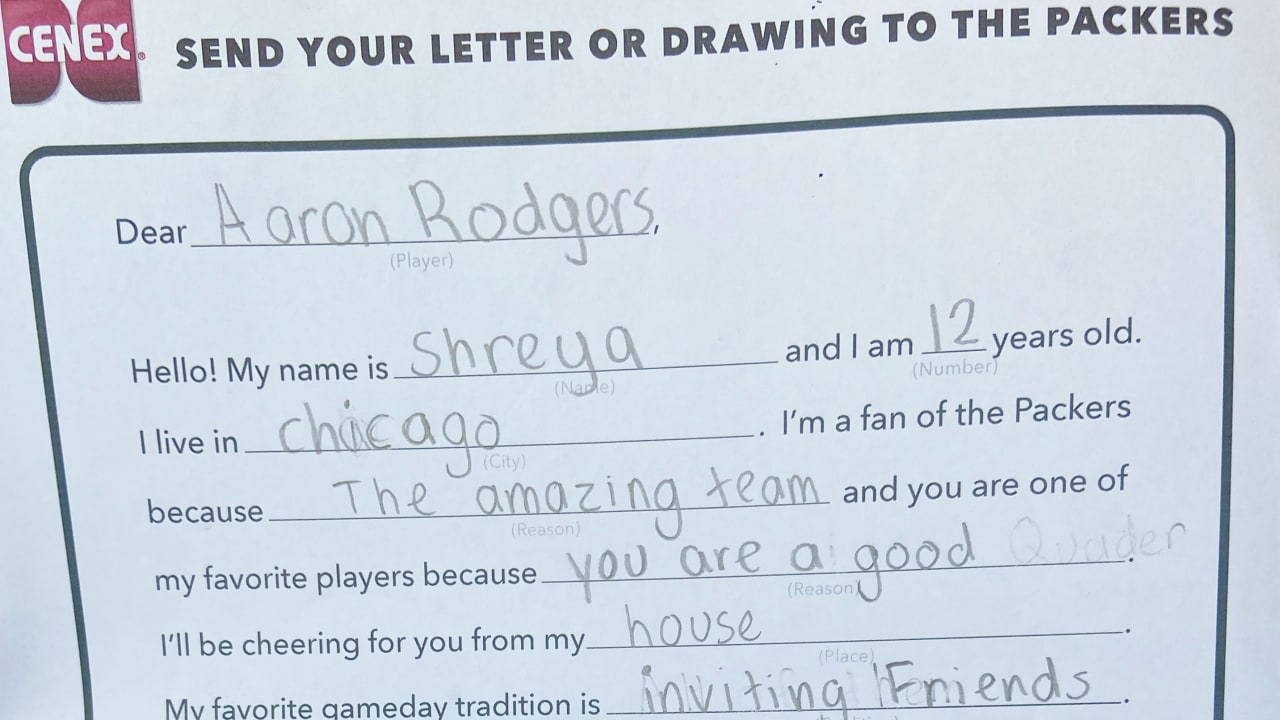 CENEX®
SEND YOUR LETTER OR DRAWING TO THE PACKERS
Dear Aaron Rodgers,
(Player)
Hello! My name is Shreya and I am 12 years old.
(Name) (Number)
I live in chicago. I'm a fan of the Packers
(City)
because The amazing team and you are one of
(Reason)
my favorite players because you are a good Quader.
(Reason)
I'll be cheering for you from my house.
(Place)
My favorite gameday tradition is inviting Friends.